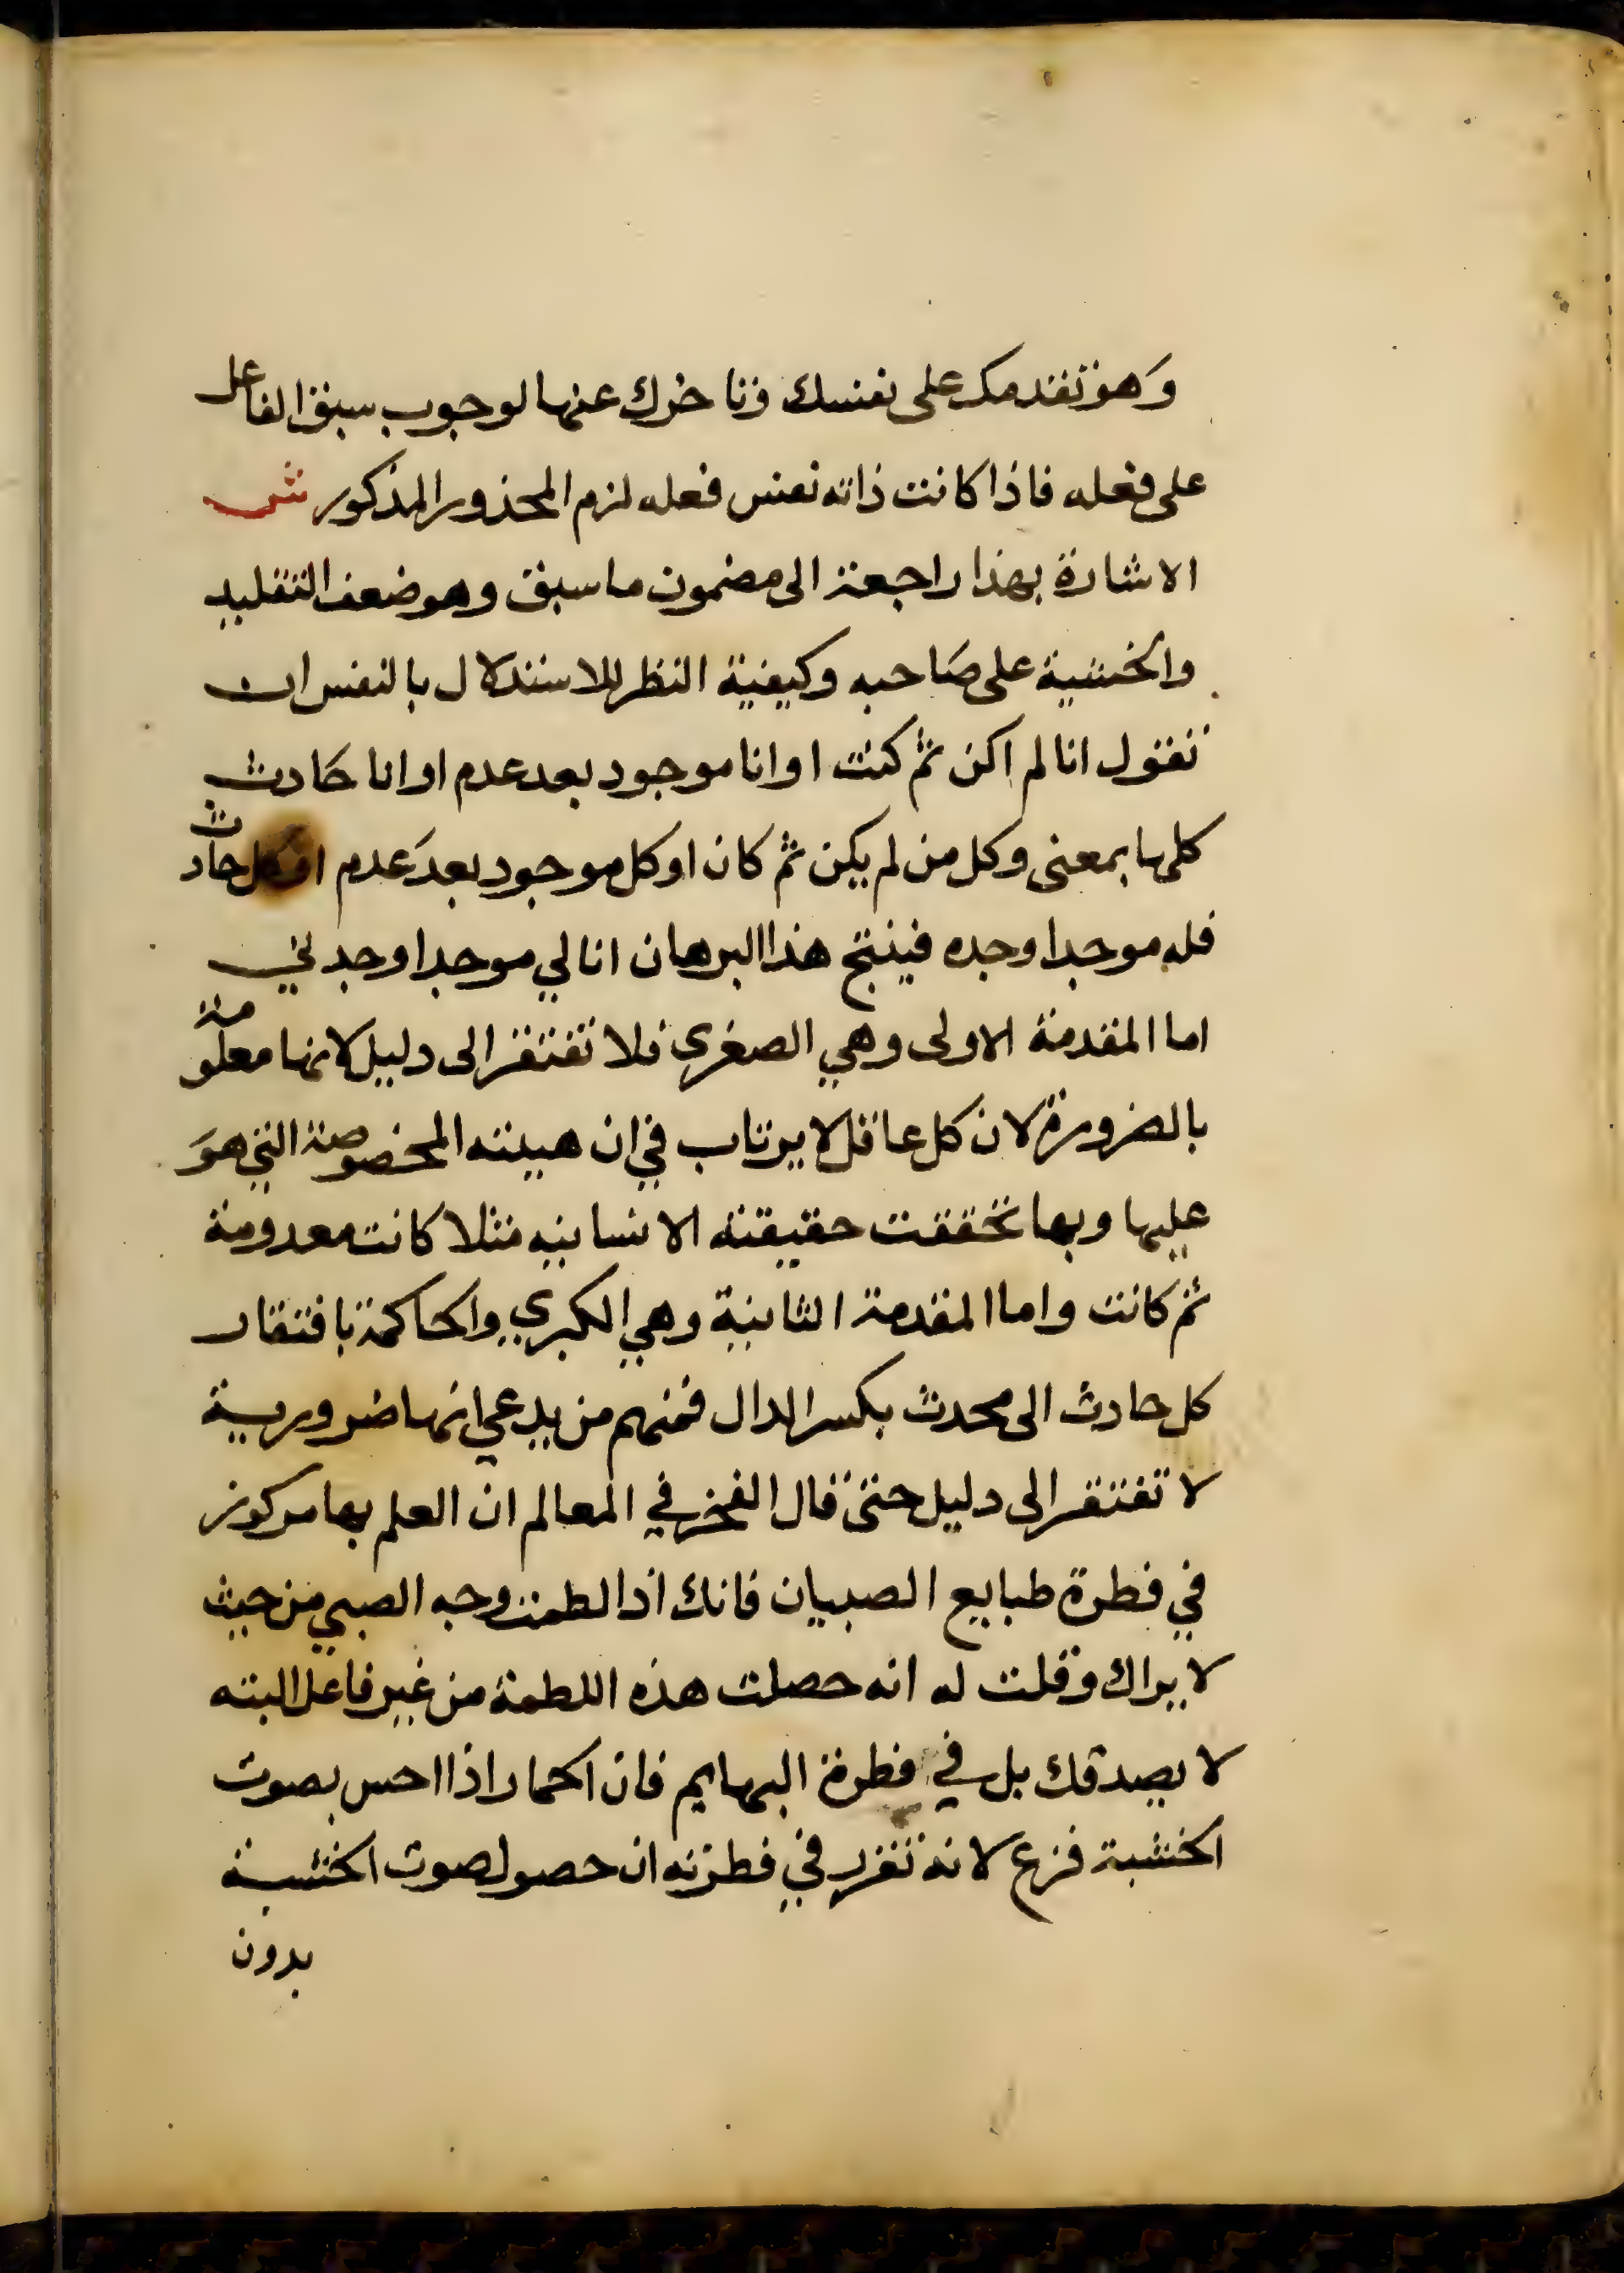 وَهو تقدمك على نفسك وتاخرك عنها لوجوب سبق الفاعل
على فعله فاذا كانت ذاته نفس فعله لزم المحذور المذكور ش
الاشارة بهذا راجعة الى مضمون ما سبق وهو ضعف التقليد
والخشية على صَاحبه وكيفية النظر للاستدلال بالنفس ان
تقول انا لم اكن ثم كنت او انا موجود بعد عدم او انا حَادث
كلها بمعنى وكل من لم يكن ثم كان او كل موجود بعدَ عدم او كل حادث
فله موجدا وجده فينتج هذا البرهان انا لي موجدا وجدني
اما المقدمة الاولى وهي الصغري فلا تفتقر الى دليل لانها معلومة
بالضرورة لان كل عاقل لا يرتاب في ان هيئته المخصوصة التي هوَ
عليها وبها تحققت حقيقته الانسانيه مثلا كانت معدومة
ثم كانت واما المقدمة الثانية وهي الكبري والحاكمة بافتقار
كل حادث الى محدث بكسر الدال فمنهم من يدعي انها ضرورية
لا تفتقر الى دليل حتى قال الفخر في المعالم ان العلم بها مركوز
في فطرة طبايع الصبيان فانك اذا لطمت وجه الصبي من حيث
لا يراك وقلت له انه حصلت هذه اللطمة من غير فاعل البته
لا يصدقك بل في فطرة البهايم فان الحمار اذا احس بصوت
الخشبة فزع لانه تقرر في فطرته ان حصول صوت الخشبة
بدون